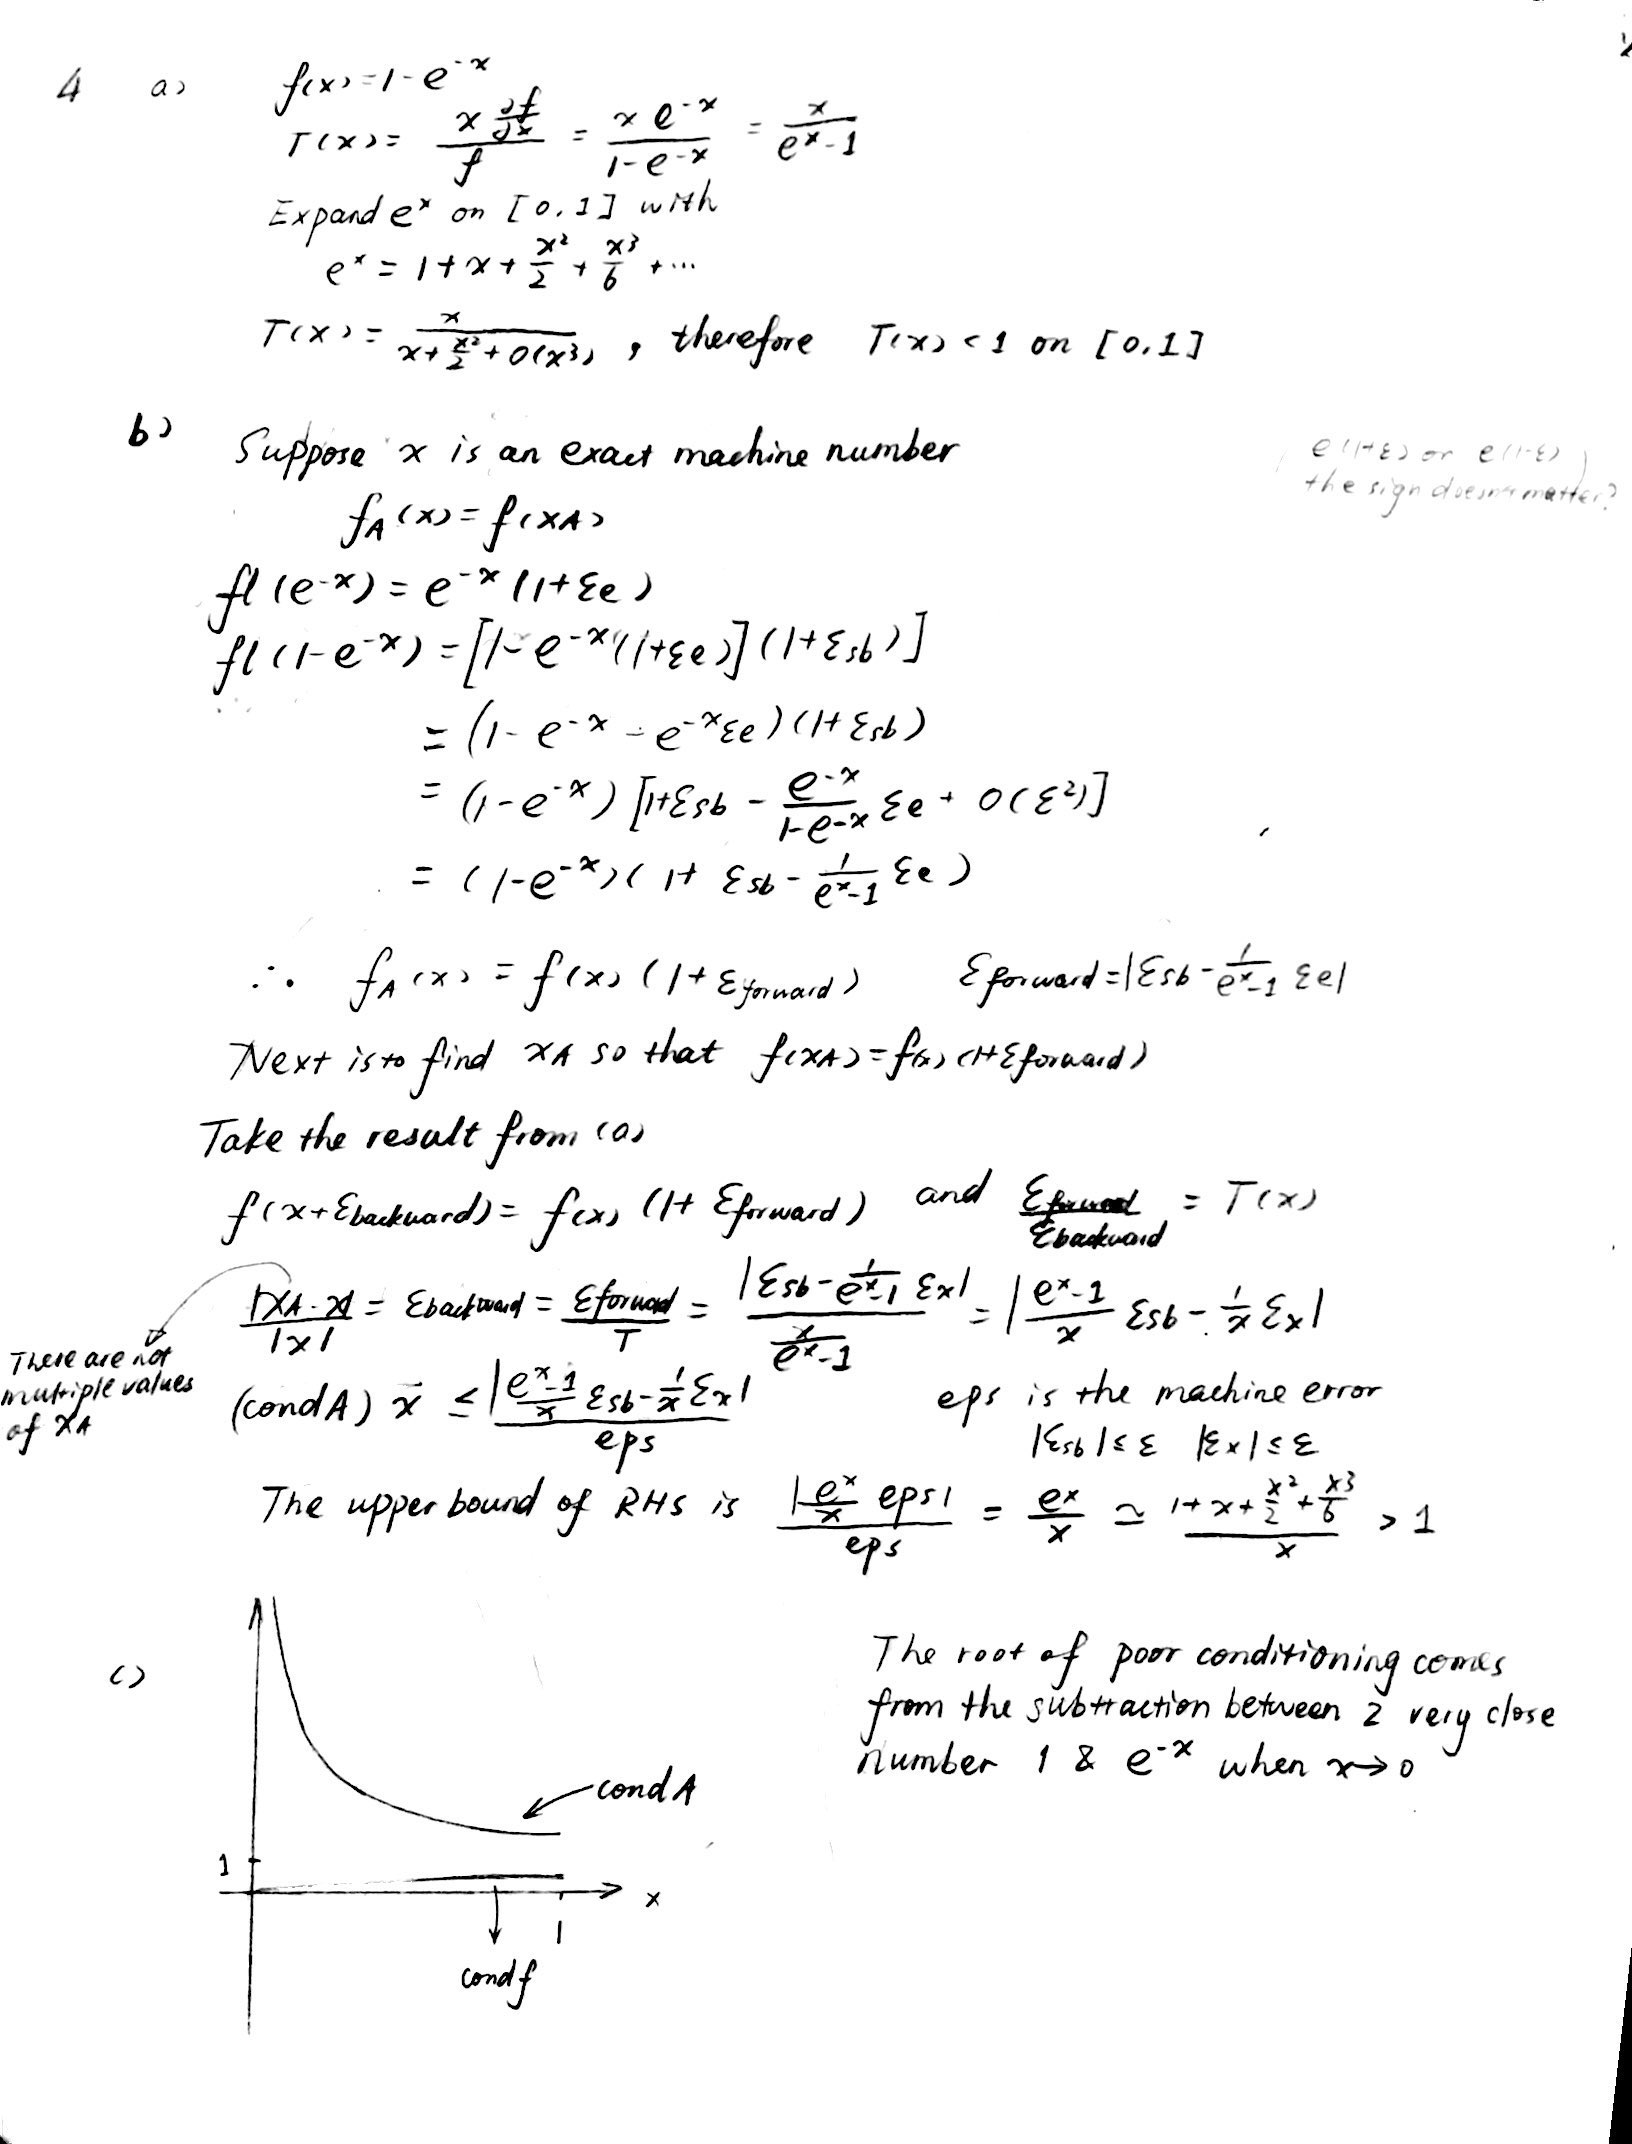 4 a) f(x) = 1 - e^{-x}
T(x) = \frac{x \frac{∂f}{∂x}}{f} = \frac{x e^{-x}}{1 - e^{-x}} = \frac{x}{e^x - 1}
Expand e^x on [0, 1] with
e^x = 1 + x + \frac{x^2}{2} + \frac{x^3}{6} + ...
T(x) = \frac{x}{x + \frac{x^2}{2} + O(x^3)}, therefore T(x) < 1 on [0, 1]
b) Suppose x is an exact machine number
e(1+ε) or e(1-ε)
the sign doesn't matter?
f_A(x) = f(x_A)
fl(e^{-x}) = e^{-x}(1 + ε_e)
fl(1 - e^{-x}) = [1 - e^{-x}(1 + ε_e)](1 + ε_{sb})]
= (1 - e^{-x} - e^{-x}ε_e)(1 + ε_{sb})
= (1 - e^{-x})[1 + ε_{sb} - \frac{e^{-x}}{1 - e^{-x}} ε_e + O(ε^2)]
= (1 - e^{-x})(1 + ε_{sb} - \frac{1}{e^x - 1} ε_e)
∴ f_A(x) = f(x)(1 + ε_{forward}) ε_{forward} = |ε_{sb} - \frac{1}{e^x - 1} ε_e|
Next is to find x_A so that f(x_A) = f(x)(1 + ε_{forward})
Take the result from (a)
f(x + ε_{backward}) = f(x)(1 + ε_{forward}) and \frac{ε_{forward}}{ε_{backward}} = T(x)
\frac{|x_A - x|}{|x|} = ε_{backward} = \frac{ε_{forward}}{T} = \frac{|ε_{sb} - \frac{1}{e^x - 1} ε_x|}{\frac{x}{e^x - 1}} = |\frac{e^x - 1}{x} ε_{sb} - \frac{1}{x} ε_x|
There are not
multiple values
of x_A
(cond A) x ≤ \frac{|\frac{e^x - 1}{x} ε_{sb} - \frac{1}{x} ε_x|}{eps} eps is the machine error
|ε_{sb}| ≤ ε |ε_x| ≤ ε
The upper bound of RHS is \frac{|\frac{e^x}{x} eps|}{eps} = \frac{e^x}{x} ≃ \frac{1 + x + \frac{x^2}{2} + \frac{x^3}{6}}{x} > 1
c)
The root of poor conditioning comes
from the subtraction between 2 very close
number 1 & e^{-x} when x→0
cond A
1
x
1
cond f